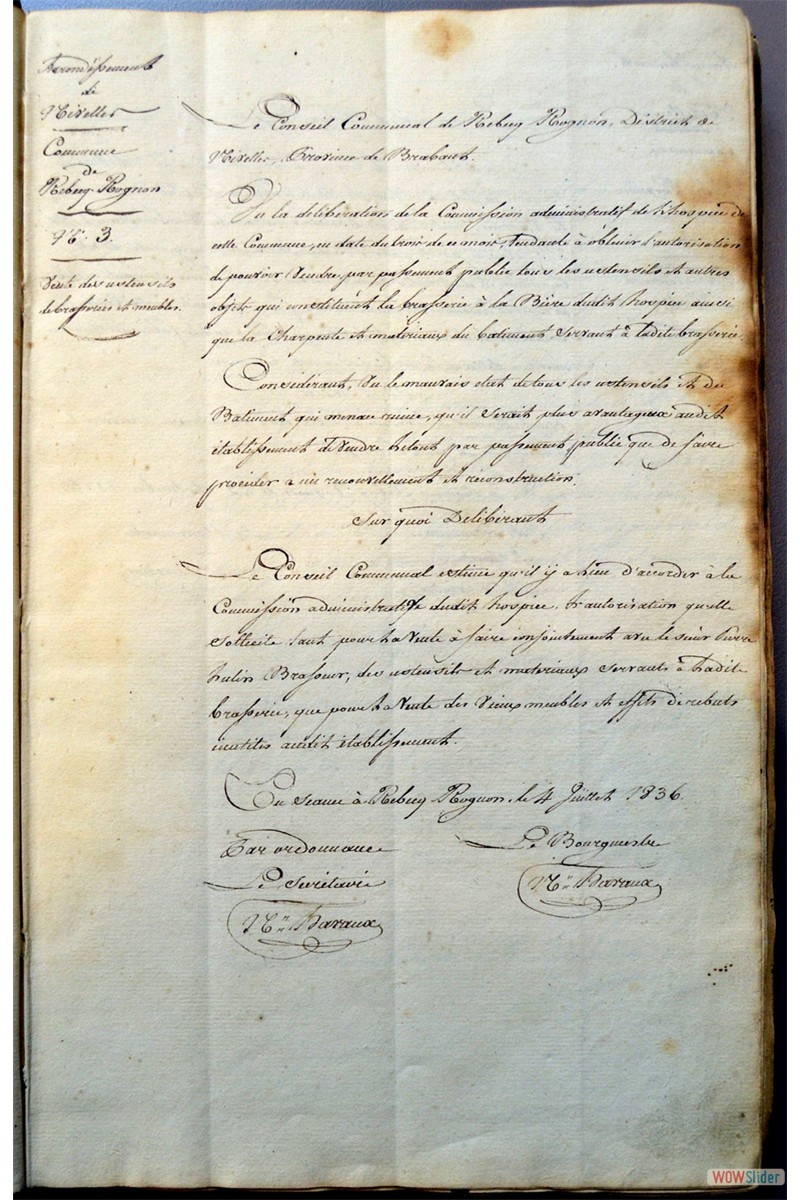 Arrondissement
de
Nivelles
Commune
de
Rebecq-Rognon
N° 3.
Vente des ustensils
de brasseries et meubles.
Le Conseil Communal de Rebecq Rognon, District de
Nivelles, Province de Brabant.
Vu la délibération de la Commission administratif de l'hospice de
cette Commune, en date du trois de ce mois, tendante à obtenir l'autorisation
de pouvoir Vendre par passement public tous les ustensils et autres
objets qui constituent la brasserie à la Bière dudit hospice ainsi
que la Charpente et matériaux du batiment Servant à ladite brasserie.
Considérant, Vu le mauvais état de tous les ustensils et du
Batiment qui menace ruine, qu'il Serait plus avantageux audit
établissement de Vendre le tout par passement public que de faire
procéder a un renouvellement et réconstruction.
Sur quoi Délibérant
Le Conseil Communal estime qu'il y a lieu d'accorder à la
Commission administratife dudit hospice, l'autorisation qu'elle
Sollicite tant pour la Vente à faire conjointement avec le sieur Pierre
hulin Brasseur, des ustensils et matériaux Servants à ladite
brasserie, que pour la Vente des Vieux meubles et effets de rebuts
inutiles audit établissement.
En séance à Rebecq Rognon, le 4 Juillet 1836.
Par ordonnance
Le Bourgmestre
Le Secrétaire